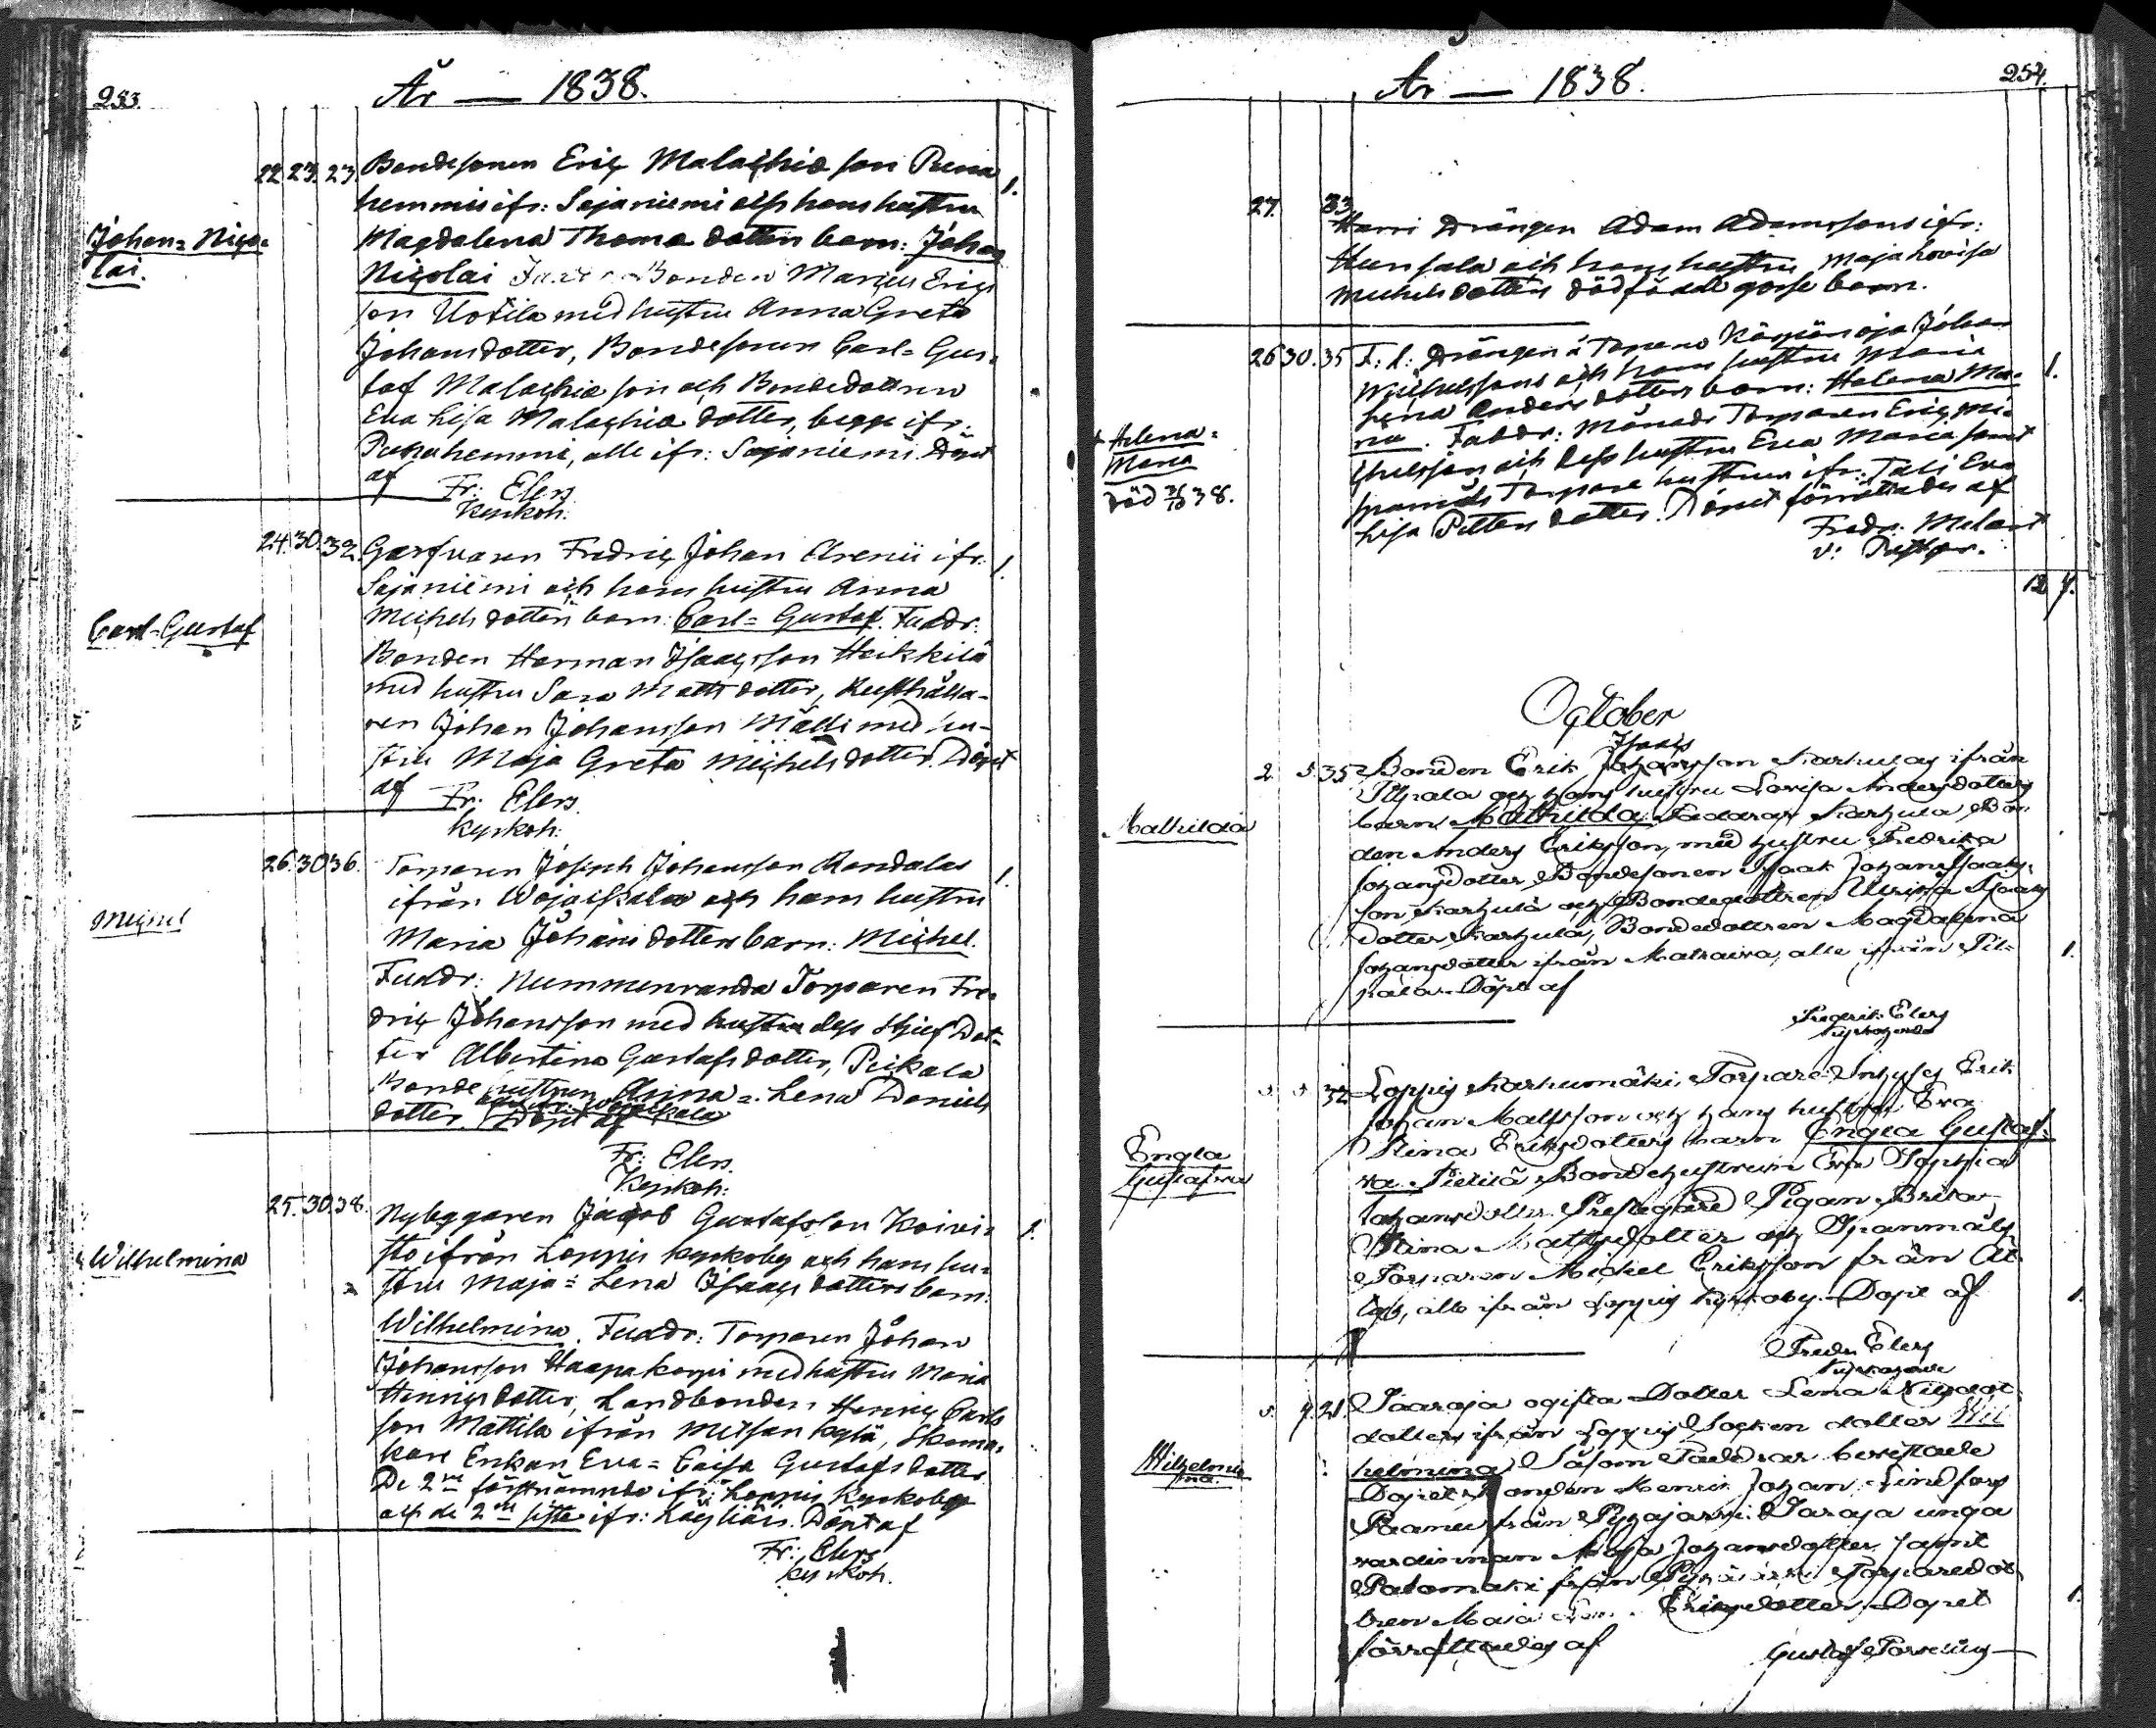 253.
År — 1838.
Johan= Nico=
lai.
22. 23. 23. Bondesonen Eric Malachia son Pura 1.
hemmis ifr: Sajaniemi och hans hustru
Magdalena Thomæ dotters barn: Johan
Nicolai Bonden Marcus Erics
son Uotila med hustru Anna Greta
Johansdotter, Bondesonen Carl= Gus=
taf Malachiæ son och Bondedottren
Eva Lisa Malachiæ dotter, begge ifr:
Purahemmi, alle ifr: Sajaniemi. Döpt
af Fr: Elers.
Kyrkoh:
Carl= Gustaf
24. 30. 32. Garfvaren Fredric Johan Arenii ifr: 1.
Sajaniemi och hans hustru Anna
Michels dotters barn: Carl= Gustaf. Faddr:
Bonden Herman Isaacsson Heikkilä
med hustru Sara Matts dotter, Rusthålla=
ren Johan Johansson Mälli med hu=
stru Maja Greta Michelsdotter. Döpt
af Fr: Elers.
Kyrkoh:
Michel
26. 30 36. Torparen Joseph Johansson Randalas 1.
ifrån Wojaiskala och hans hustru
Maria Johans dotters barn: Michel.
Faddr: Nummenranda Torparen Fre=
dric Johansson med hustru dess Stjuf Dot=
ter Albertina Gustafsdotter, Peikala
Bonde hustrun Anna= Lena Daniels
dotter Döpt af
Fr: Elers.
Kyrkoh:
Wilhelmina
25. 30. 38. Nybyggaren Jacob Gustafsson Koivi= 1.
sto ifrån Loppis kyrkoby och hans hu=
stru Maja= Lena Isaacs dotters barn:
Wilhelmina. Faddr: Torparen Johan
Johansson Haapakorpi med hustru Maria
Henrics dotter, Landbonden Henric Carls
son Mattila ifrån Metsänkylä, Skoma=
kare Enkan Eva= Caisa Gustafsdotter
De 2ne förstnämnde ifr: Loppis Kyrkoby
och de 2ne siste ifr: Läyliäis. Döpt af
Fr: Elers
Kyrkoh.
År — 1838.
254.
27. 33 Harri Drängen Adam Adamssons ifr:
Hunsala och hans hustru Maja Lovisa
Michelsdotters dödfödde gosse barn.
+ Helena=
Maria
död 3/10 38.
26 30. 35 F: d: Drängen å Topeno Johan
Michelssons och hans hustru Maria 1.
Anders dotters barn: Helena Ma=
ria. Faddr: Torparen Eric Mi=
chelsson och dess hustru Eva Maria samt
Torpare hustrun ifr: Eva
Lisa Petters dotter. Döpet förrättades af
Fredr: Melart
v: Pastor.
12 7.
October
Mathilda
2. 5. 35. Bonden Erik Isaacs Johansson Karhulas ifrån
Pilpala och hans hustru Lovisa Andersdotters
barn Mathilda. Faddrar Karhula Bon
den Anders Eriksson, med hustru Fredrika
Johansdotter, Bondesonen Isaak Johan Isaaks=
son Karhula och Bondedottren Ulrika Isaaks
dotter Karhula, Bondedottren Magdalena
Johansdotter ifrån Maltaira, alle ifrån Pil= 1.
pala. Döpt af
Frederik Elers
Kyrkoherde
Engla
Gustafva
5. 5. 32 Loppis Karhumäki, Torpare Inhyses Erik
Johan Mattsson och hans hustru Eva
Stina Eriksdotters barn Engla Gustaf=
va. Pietilä Bondehustrun Eva Sophia
Johansdotter. Prestegård Pigan Brita
Stina Mattsdotter och Spanmäls
Torparen Mickel Eriksson från
alle ifrån Loppis Kyrkoby. Döpt af 1.
Fredr: Elers
Kyrkoherde
Wilhelmi
na.
5. 7. 21. Saaraja ogifta Dotter Lena Nilsdot
dotters ifrån Loppis Socken dotter Wil
helmina Såsom Faddrar bevistade
Döpet Bonden Henrik Johan Lindfors
Paanu från Pyhäjärvi Saraja unga
värdinnan Maja Johansdotter, samt
Palomäki från Pyhäjärvi Torparedot
tren Maja Eriksdotter. Döpet 1.
förrättades af Gustaf